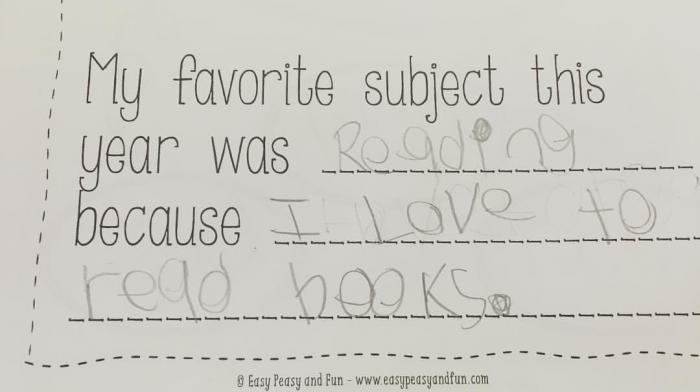 My favorite subject this
year was Reading
because I Love to
read books.
© Easy Peasy and Fun - www.easypeasyandfun.com